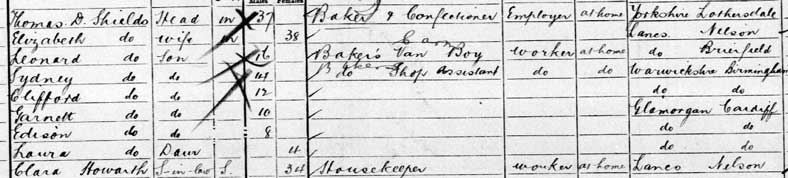 Males Females
Thomas D. Shields Head m 37 Baker & Confectioner Employer at home Yorkshire Lothersdale
Elizabeth do Wife m 38 Lancs. Nelson
Leonard do Son 16 Baker's Van Boy Worker at home do Brierfield
Sydney do do 14 do Shop Assistant do do Warwickshire Birmingham
Clifford do do 12 do do
Garnett do do 10 Glamorgan Cardiff
Edison do do 8 do do
Laura do Daur 4 do do
Clara Howarth S-in-law S. 34 Housekeeper worker at home Lancs Nelson